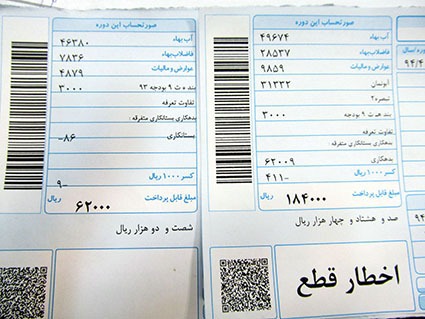 صورتحساب این دوره
آب بهاء ۴۹۶۷۴
فاضلاب بهاء ۲۸۵۳۷
عوارض و مالیات ۹۸۵۹
آبونمان ۳۱۳۳۲
تبصره ۲
بند هـ ت ۹ بودجه ۳۰۰۰
تفاوت تعرفه
بدهکاری بستانکاری متفرقه
بدهکاری ۶۲۰۰۹
کسر ۱۰۰۰ ریال ۴۱۱-
مبلغ قابل پرداخت ۱۸۴۰۰۰ ریال
صد و هشتاد و چهار هزار ریال
اخطار قطع
صورتحساب این دوره
آب بهاء ۴۶۳۸۰
فاضلاب بهاء ۷۸۳۶
عوارض و مالیات ۴۸۷۹
بند ه ت ۹ بودجه ۹۳ ۳۰۰۰
تفاوت تعرفه
بدهکاری بستانکاری متفرقه:
بستانکاری ۸۶-
کسر ۱۰۰۰ ریال ۹-
مبلغ قابل پرداخت ۶۲۰۰۰ ریال
شصت و دو هزار ریال